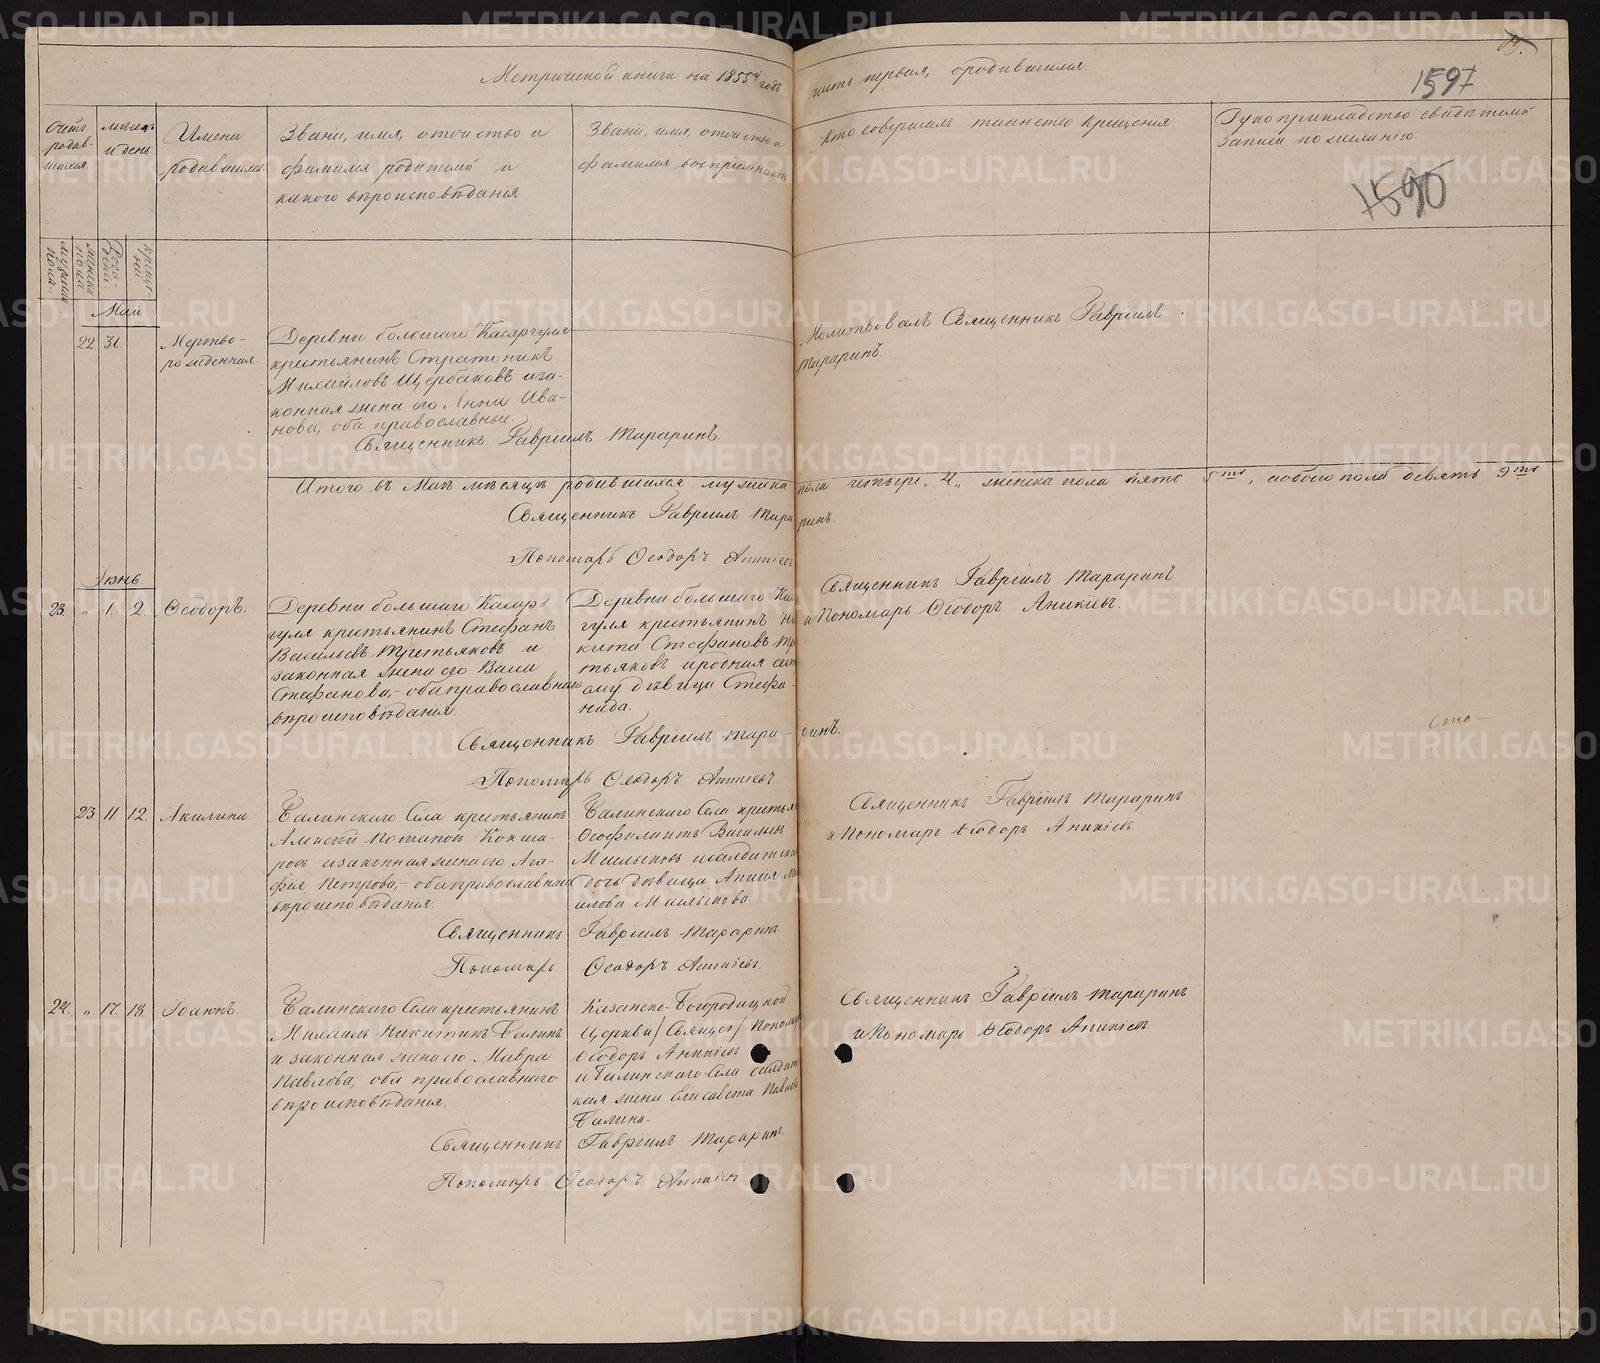 Метрической книги на 1855й годъ часть первая, о родившихся.
1597
1590
Счетъ родив-
шихся.
мѣсяцъ
и день
Имена
родившихся.
Званіе, имя, отчество и
фамилія родителей и
какого вѣроисповѣданія
Званіе, имя, отчество и
фамилія воспріемниковъ
Кто совершалъ таинство крещенія.
Рукоприкладство свидѣтелей
записи по желанію.
мужеска
пола.
женска
пола
Рожде-
нія.
Креще-
нія
Май
22 31
Мертво-
рожденная.
Деревни большаго Касаргуля
крестьянинъ Стратоникъ
Михайловъ Щербаковъ и за-
конная жена его Анна Ива-
нова, оба православные.
Молитвовалъ Священникъ Гавріилъ
Тараринъ.
Священникъ Гавріилъ Тараринъ.
Итого въ Маѣ мѣсяцѣ родившихся мужеска пола четыре „4„ женска пола пять 5ть, обоего пола девять 9ть
Священникъ Гавріилъ Тараринъ.
Пономарь Ѳеодоръ Аникіевъ
Іюнь
23. „ 1. 2.
Ѳеодоръ.
Деревни большаго Касар-
гуля крестьянинъ Стефанъ
Васильевъ Третьяковъ и
законная жена его Васса
Стефанова,- оба православнаго
вѣроисповѣданія.
Деревни большаго Ка
гуля крестьянинъ Ни
кита Стефановъ Тре
тьяковъ и родная сест
ему дѣвица Стефа-
нида.
Священникъ Гавріилъ Тараринъ
и Пономарь Ѳеодоръ Аникіевъ.
Священникъ Гавріилъ Тараринъ.
Пономарь Ѳеодоръ Аникіевъ
23 11 12.
Акилина.
Балинскаго Села крестьянинъ
Алексѣй Потаповъ Кокша-
ровъ и законная жена его Ага-
фія Петрова,- оба православнаго
вѣроисповѣданія.
Балинскаго Села крестья
Ѳеофилактъ Васильевъ
и солдатская
дочь дѣвица
Священникъ Гавріилъ Тараринъ
и Пономарь Ѳеодоръ Аникіевъ.
Священникъ Гавріилъ Тараринъ
Пономарь Ѳеодоръ Аникіевъ.
24. „ 17. 18.
Іоаннъ.
Балинскаго Села крестьянинъ
Михаилъ Никитинъ Балинъ
и законная жена его Мавра
Павлова, оба православнаго
вѣроисповѣданія.
Казанско-Богородицкой
Церкви Пономарь
Ѳеодоръ Аникіевъ
и Балинскаго Села солдатс
кая жена Елисавета Павлова
Балина.
Священникъ Гавріилъ Тараринъ
и Пономарь Ѳеодоръ Аникіевъ.
Священникъ Гавріилъ Тараринъ.
Пономарь Ѳеодоръ Аникіевъ
сто-
METRIKI.GASO-URAL.RU